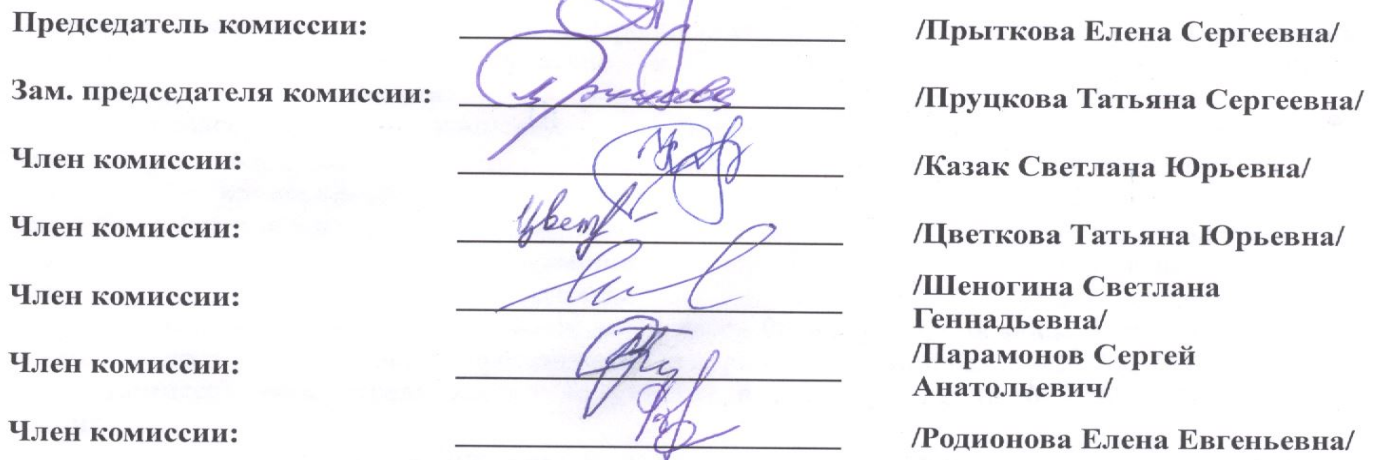 Председатель комиссии: /Прыткова Елена Сергеевна/
Зам. председателя комиссии: /Пруцкова Татьяна Сергеевна/
Член комиссии: /Казак Светлана Юрьевна/
Член комиссии: Цвет /Цветкова Татьяна Юрьевна/
Член комиссии: /Шеногина Светлана
Геннадьевна/
Член комиссии: /Парамонов Сергей
Анатольевич/
Член комиссии: /Родионова Елена Евгеньевна/